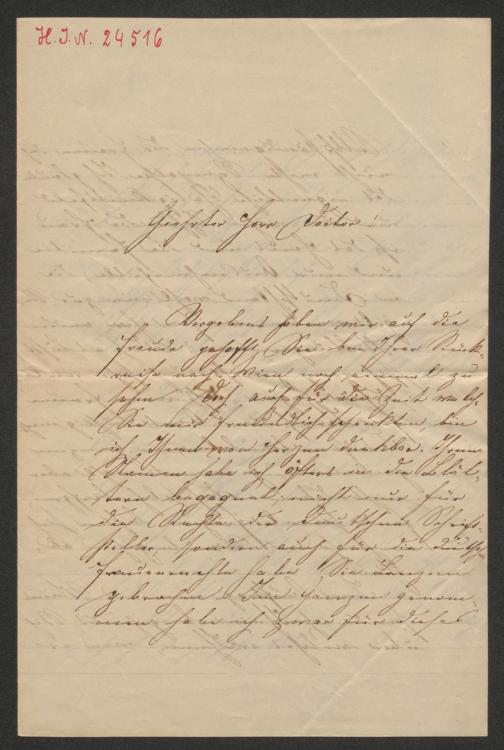 H. I. N. 24516
Geehrter Herr Doctor!
Vergebens haben wir auf die
Freude gehofft, Sie bei Ihrer Rück-
reise nach Wien noch einmal zu
sehen. Doch auch für die Zeit welche
Sie mir freundlich schenkten, bin
ich Ihnen von Herzen dankbar. Ihrem
Namen habe ich öfters in den Blät-
tern begegnet, nicht nur für
die Rechte der deutschen Schrift-
steller sondern auch für die
Frauenrechte haben Sie Lanzen
gebrochen. Im Ganzen genom-
men habe ich zwar für dieses